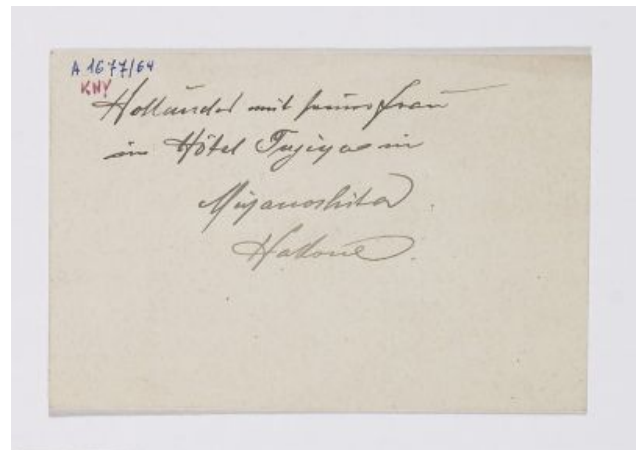 A 1677/64
KNY
Holländer mit seiner Frau
im Hôtel Fujiya in
Miyanoshita.
Hakone.